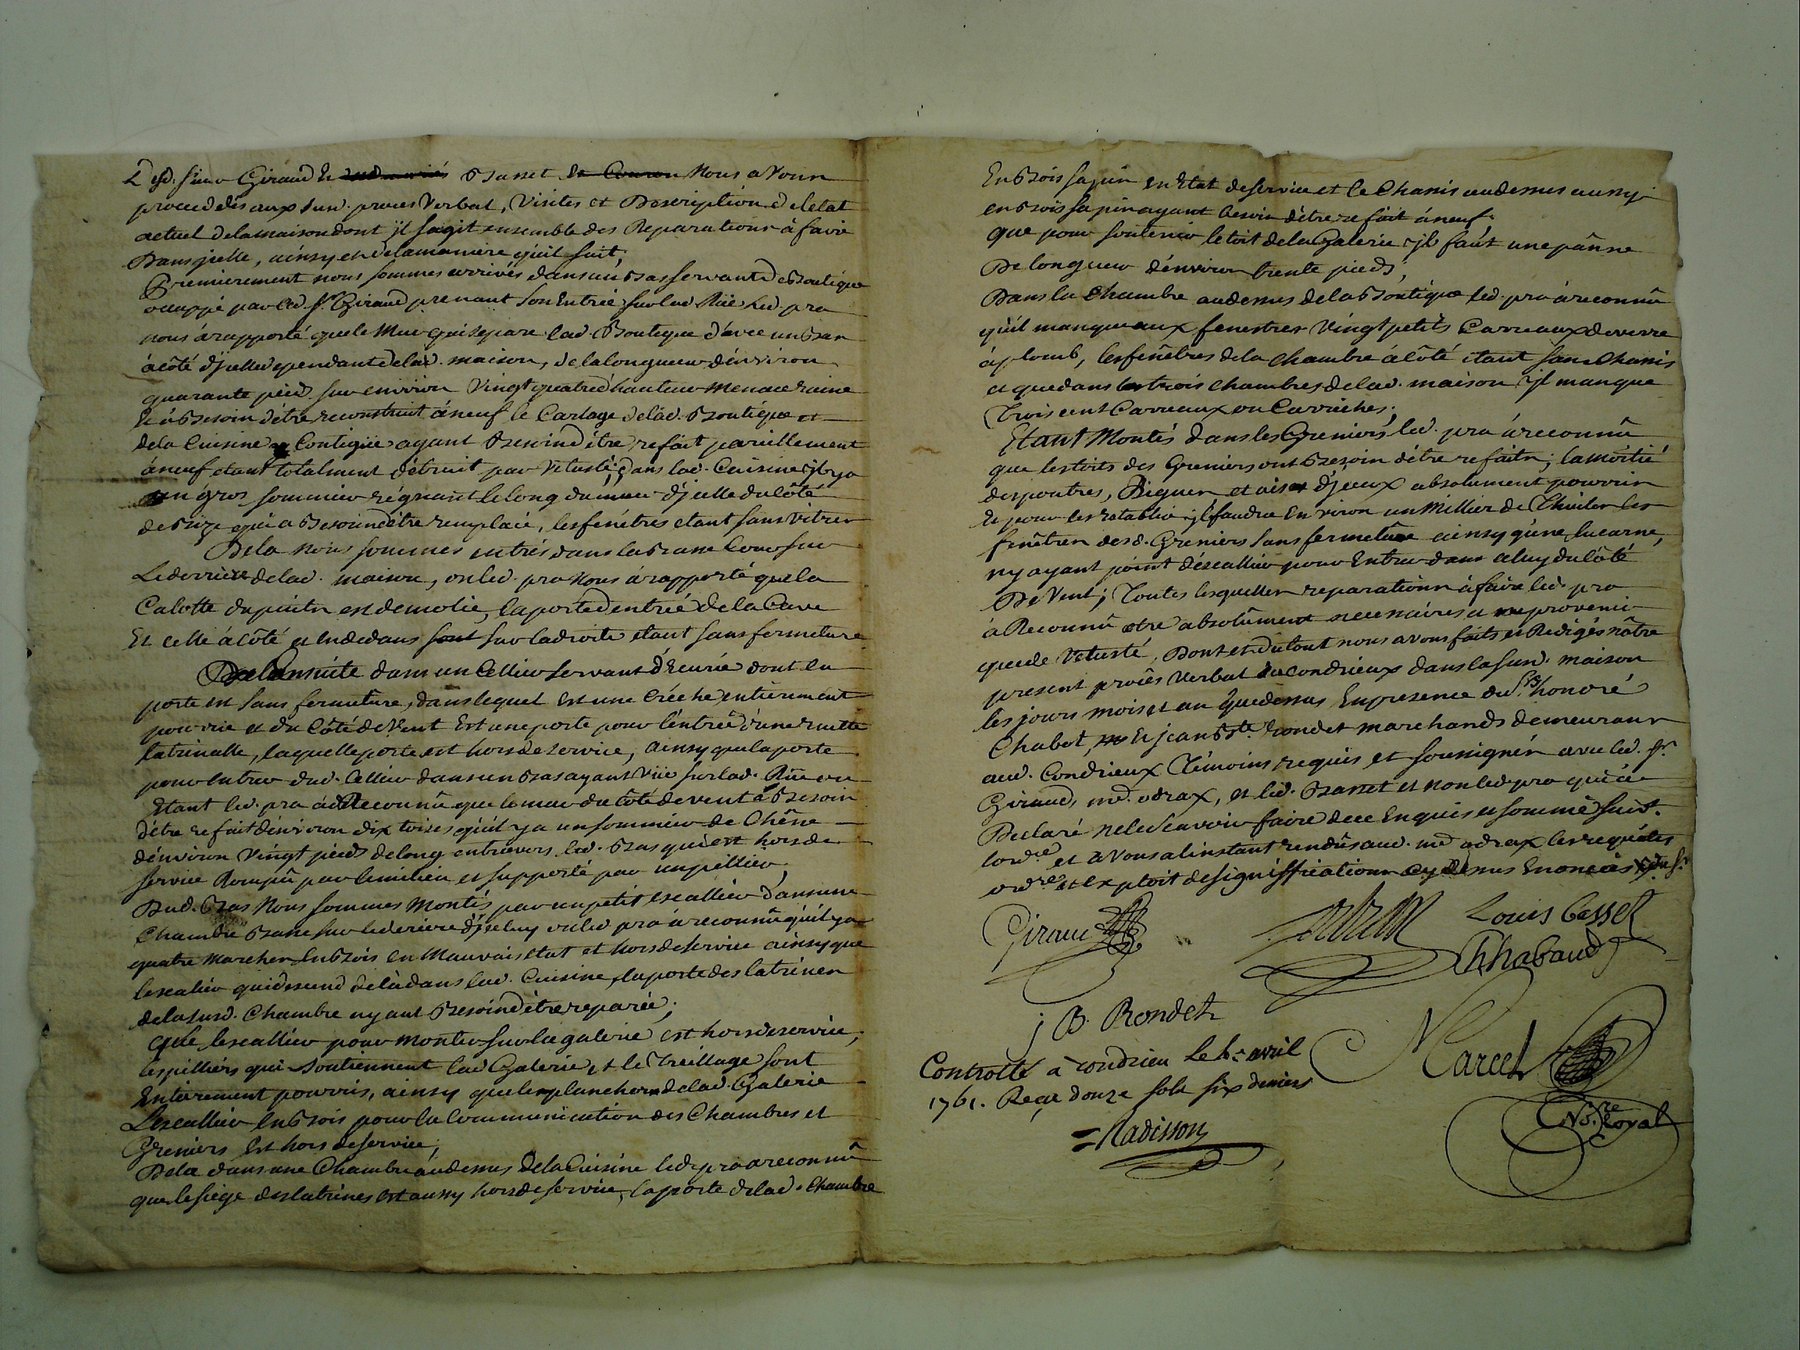 Led. sieur Giraud et Basset Nous avons
procedés aux susd. procés verbal, visites et Description de letat
actuel delamaison dont jl sagit ensemble des Reparations à faire
Dans jcelle, ainsy et delamaniere quil suit,
Premierement nous sommes arrivés dans un Bas servant de Boutique
occuppé par led. Sr Giraud prenant son Entrée sur lad. Rüe led. pra
nous à rapporté que le Mur qui separe lad. Boutique d'avec un Bas
àcôté djcelle dependant delad. maison, de la longueur denviron
quarante pieds sur environ Vingt quatre d'hauteur Menace ruine
Et à Besoin d'être reconstruit à neuf le Carlage delad. Boutique et
dela Cuisine Contigüe ayant Besoin d'être refait pareillement
àneuf etant totalment détruit par Vetusté; dans lad. Cuisine jl y a
un gros sommier regnant le long du mur djcelle du Côté
de Bize qui a Besoin d'être remplacé, les fenêtres etant sans vitres
Dela nous sommes entrés dans la Basse Cour sur
Le derriere delad. maison, ou led. pra Nous à rapporté que la
Calotte du puits est demolie, la porte d'entrée de la Cave
Et celle à côté et Endedans sur la droite etant sans fermeture
De la ensuite dans un Cellier servant d'Ecurie dont la
porte est sans fermeture, dans lequel Est une Crêche entierement
pourrie et du Côté de Vent Est une porte pour l'entrée d'une ruette
latrinalle, laquelle porte est hors de service, ainsy que la porte
pour entrer dud. Cellier dans un Bas ayant Vüe sur lad. Rüe ou
Etant led. pra à Reconnû que le mur du Côté de vent à Besoin
d'être refait d'environ dix toises qu'il y a un sommier de Chêne
d'environ Vingt pieds de long entravers led. Bas qui est hors de
service Rompû par le milieu et supporté par un pillier,
Dud. Bas Nous sommes Montés par un petit escallier dans une
Chambre Basse sur le deriere djceluy ou led pra à reconnû qu'il y a
quatre marches En Bois en Mauvais etat et hors de service ainsy que
lescalier qui descend delà dans lad. Cuisine, la porte des latrines
de la susd. Chambre ayant Besoin d'être reparée;
Que lescallier pour monter sur la galerie est hors de service,
les pilliers qui soutiennent lad Galerie et le Treillage sont
Entierement pourris, ainsy que les planchers delad. Galerie
Lescallier En Bois pour la Communication des Chambres et
Greniers Est hors de service,
Dela dans une Chambre audessus dela Cuisine led. pra a reconnû
que le siege des latrines est aussy hors de service, la porte delad. Chambre
En Bois sapin en Etat de service et le Chassis audessus aussy
en Bois sapin ayant besoin d'être refait àneuf.
que pour soutenir le toit de la Galerie jl faut une pânne
De longueur d'environ trente pieds,
Dans la Chambre audessus de la Boutique led. pra à reconnû
qu'il manque aux fenestres Vingt petits Carreaux de verre
à plomb, les fenêtres de la chambre à côté etant sans Chassis
et que dans les trois chambres delad. maison jl manque
Trois cent Carreaux ou Carriches;
Etant Montés dans les Greniers led. pra à reconnû
que les toits des Greniers ont Besoin d'être refaits; la moitié
des poutres, et ais djceux absolument pourris
Et pour les retablir jl faudra Environ un Millier de Thuiles les
fenêtres desd. Greniers sans fermeture ainsy q'une lucarne,
ny ayant point d'escallier pour Entrer dans celuy du côté
De Vent; Toutes lesquelles reparations à faire led. pra
à Reconnû etre absolûment necessaires et ne provenir
que de Vetusté, Dont et du tout nous avons faits et Redigés nôtre
present procés verbal à Condrieux dans la susd. maison
les jours mois et an que dessus En presence du Sr honoré
Chabot, Et jean Bte. Rondet marchands demeurans
aud. Condrieux Témoins requis et soussignés avec led. Sr.
Giraud, md. odrax, et led. Basset et non led. pra qui à
Declaré ne le sçavoir faire de ce Enquis et sommé suivt.
lordce et avons alinstant rendus aud. md adrax les requétes
ordre et Exploit de signiffication cy dessus Enoncés
Giraud
Louis Basset
Chabaud
j B. Rondet
Controllé à Condrieu le 6e avril
1761. Reçu douze sols six deniers
Madisson
Marcel
Nore Royal